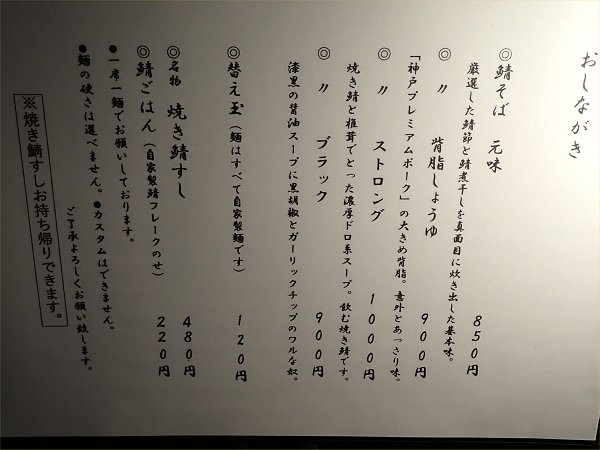 おしながき
◎鯖そば 元味 850円
厳選した鯖節と鯖煮干しを真面目に炊き出した基本味。
◎ 〃 背脂しょうゆ 900円
「神戸プレミアムポーク」の大きめ背脂。意外とあっさり味。
◎ 〃 ストロング 1000円
焼き鯖と椎茸でとった濃厚ドロ系スープ。飲む焼き鯖です。
◎ 〃 ブラック 900円
漆黒の醤油スープに黒胡椒とガーリックチップのワルな奴。
◎替え玉(麺はすべて自家製麺です) 120円
◎名物 焼き鯖すし 480円
◎鯖ごはん(自家製鯖フレークのせ) 220円
●一席一麺でお願いしております。
●麺の硬さは選べません。●カスタムはできません。
ご了承よろしくお願い致します。
※焼き鯖すしお持ち帰りできます。